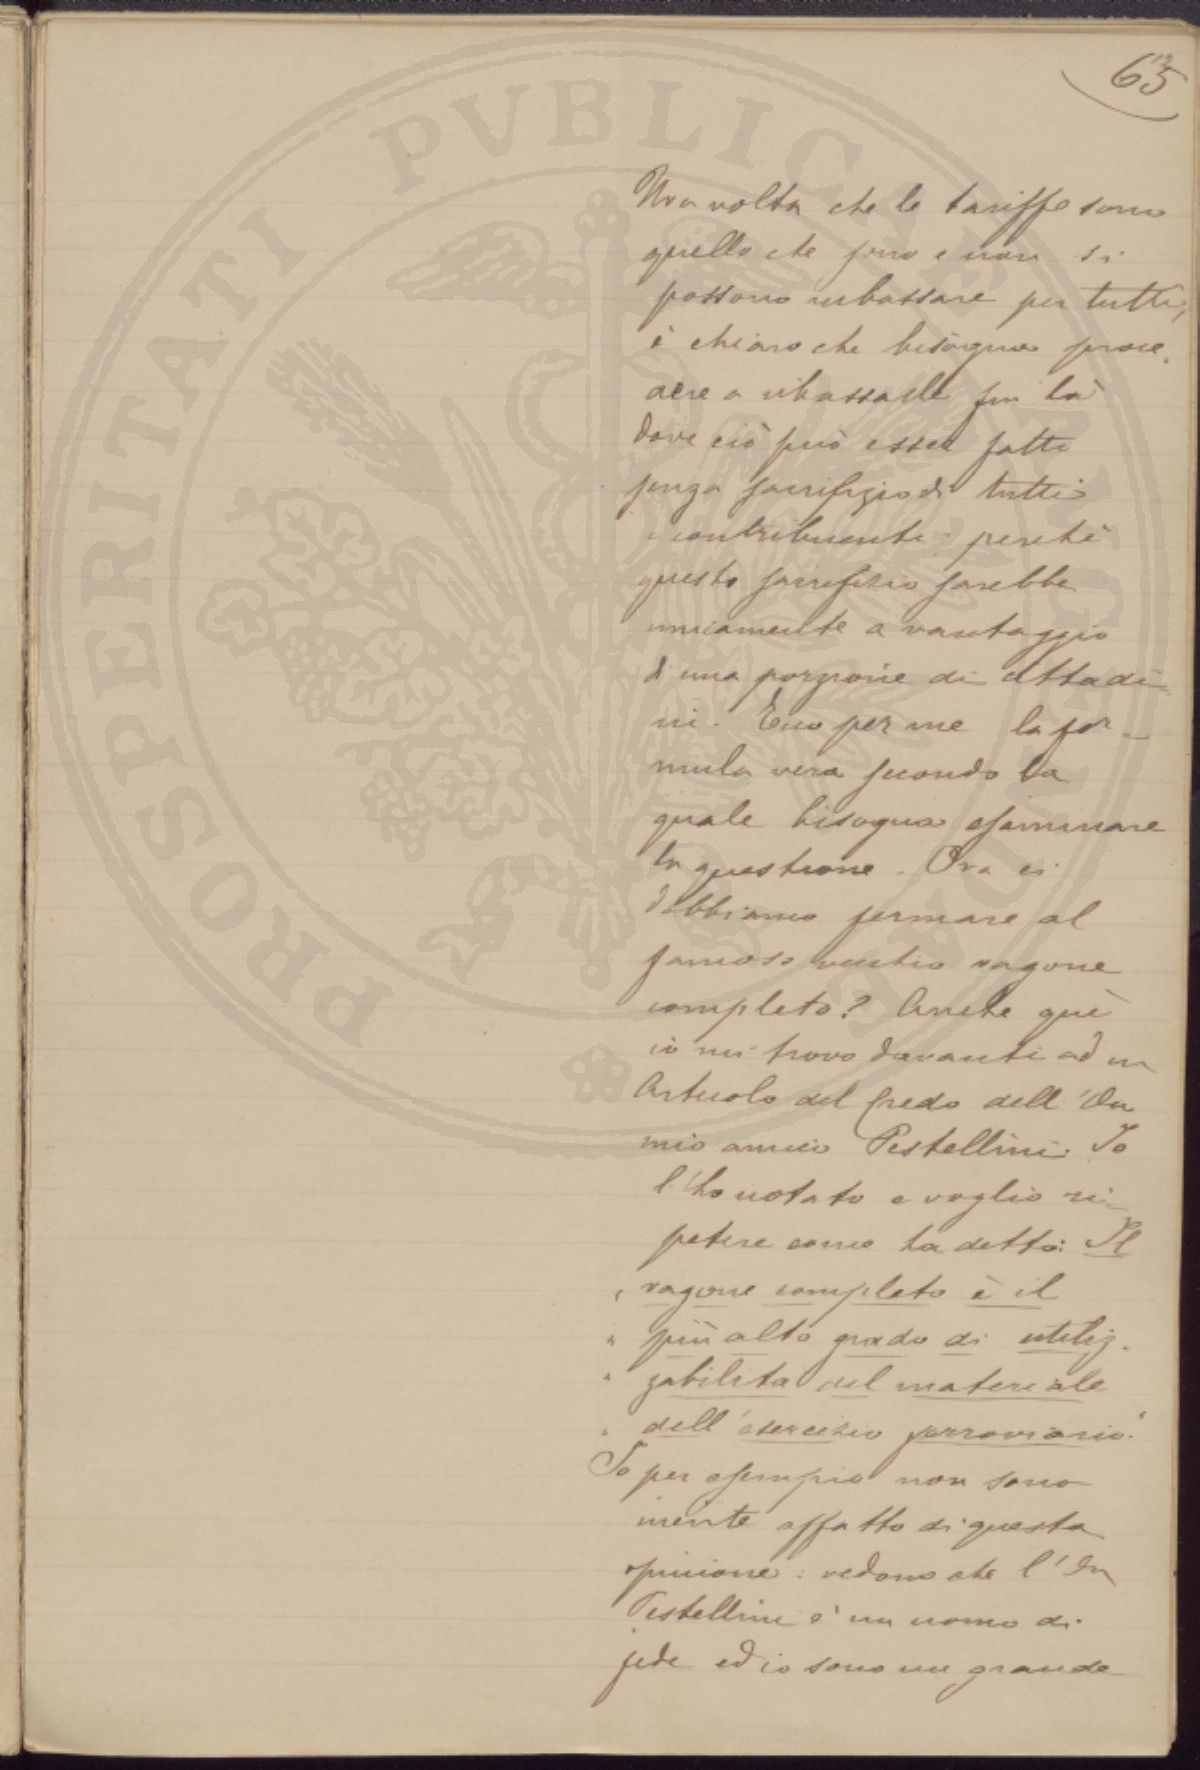 65
PROSPERITATI PVBLICAE AVGENDAE
Una volta che le tariffe sono
quello che sono e non si
possono ribassare per tutti,
è chiaro che bisogna proce-
dere a ribassarle fin là
dove ciò può esser fatto
senza sacrifizio di tutti
i contribuenti perchè
questo sacrifizio sarebbe
unicamente a vantaggio
di una porzione di cittadi-
ni. Ecco per me la for-
mula vera secondo la
quale bisogna esaminare
la questione. Ora ci
dobbiamo fermare al
famoso vecchio vagone
completo? Anche quì
io mi trovo davanti ad un
Articolo del Credo dell'On
mio amico Pestellini. Io
l'ho notato e voglio ri-
petere come ha detto: Il
" vagone completo è il
" più alto grado di utiliz-
" zabilità del materiale
" dell'esercizio ferroviario."
Io per esempio non sono
niente affatto di questa
opinione: vedono che l'On
Pestellini è un uomo di
fede ed io sono un grande